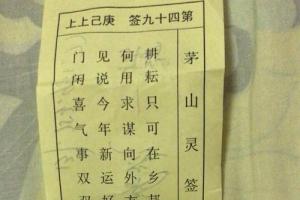 第四十九签 庚己上上
茅山灵签
耕耘只可在乡邦
何用求谋向外方
见说今年新运好
门闲喜气事双双